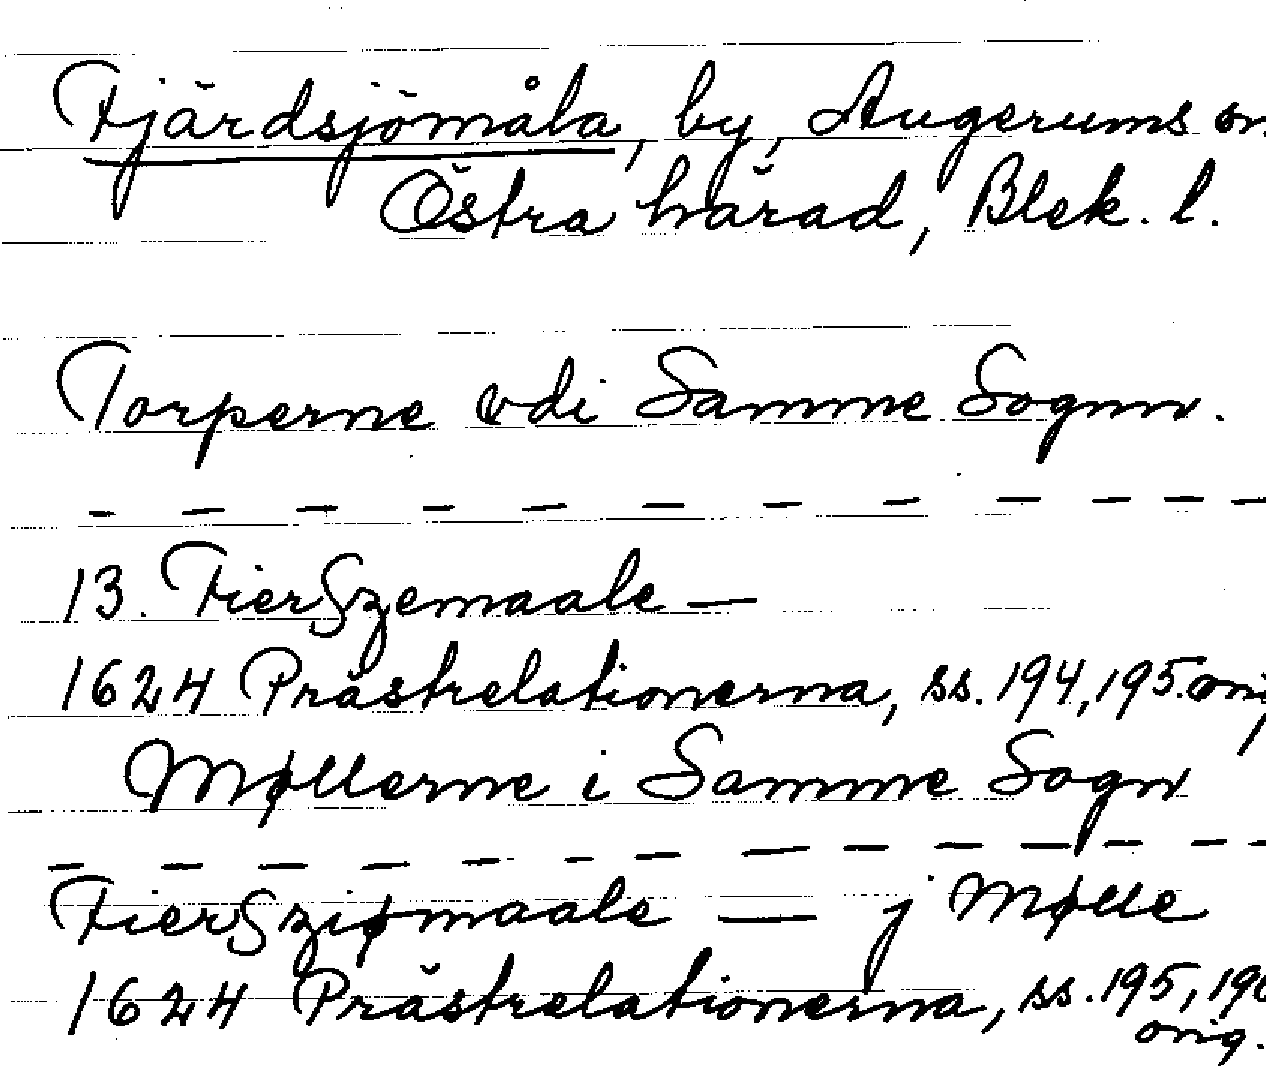 Fjärdsjömåla, by, Augerums sn
Östra härad, Blek. l.
Torperne vdi Samme Sognn.
— — — — — — — — — — —
13. FierSzemaale —
1624 Prästrelationerna, ss. 194, 195. orig
Møllerne i Samme Sogn
— — — — — — — — — — — — —
FierSziømaale — j Mølle
1624 Prästrelationerna, ss. 195, 196
orig.